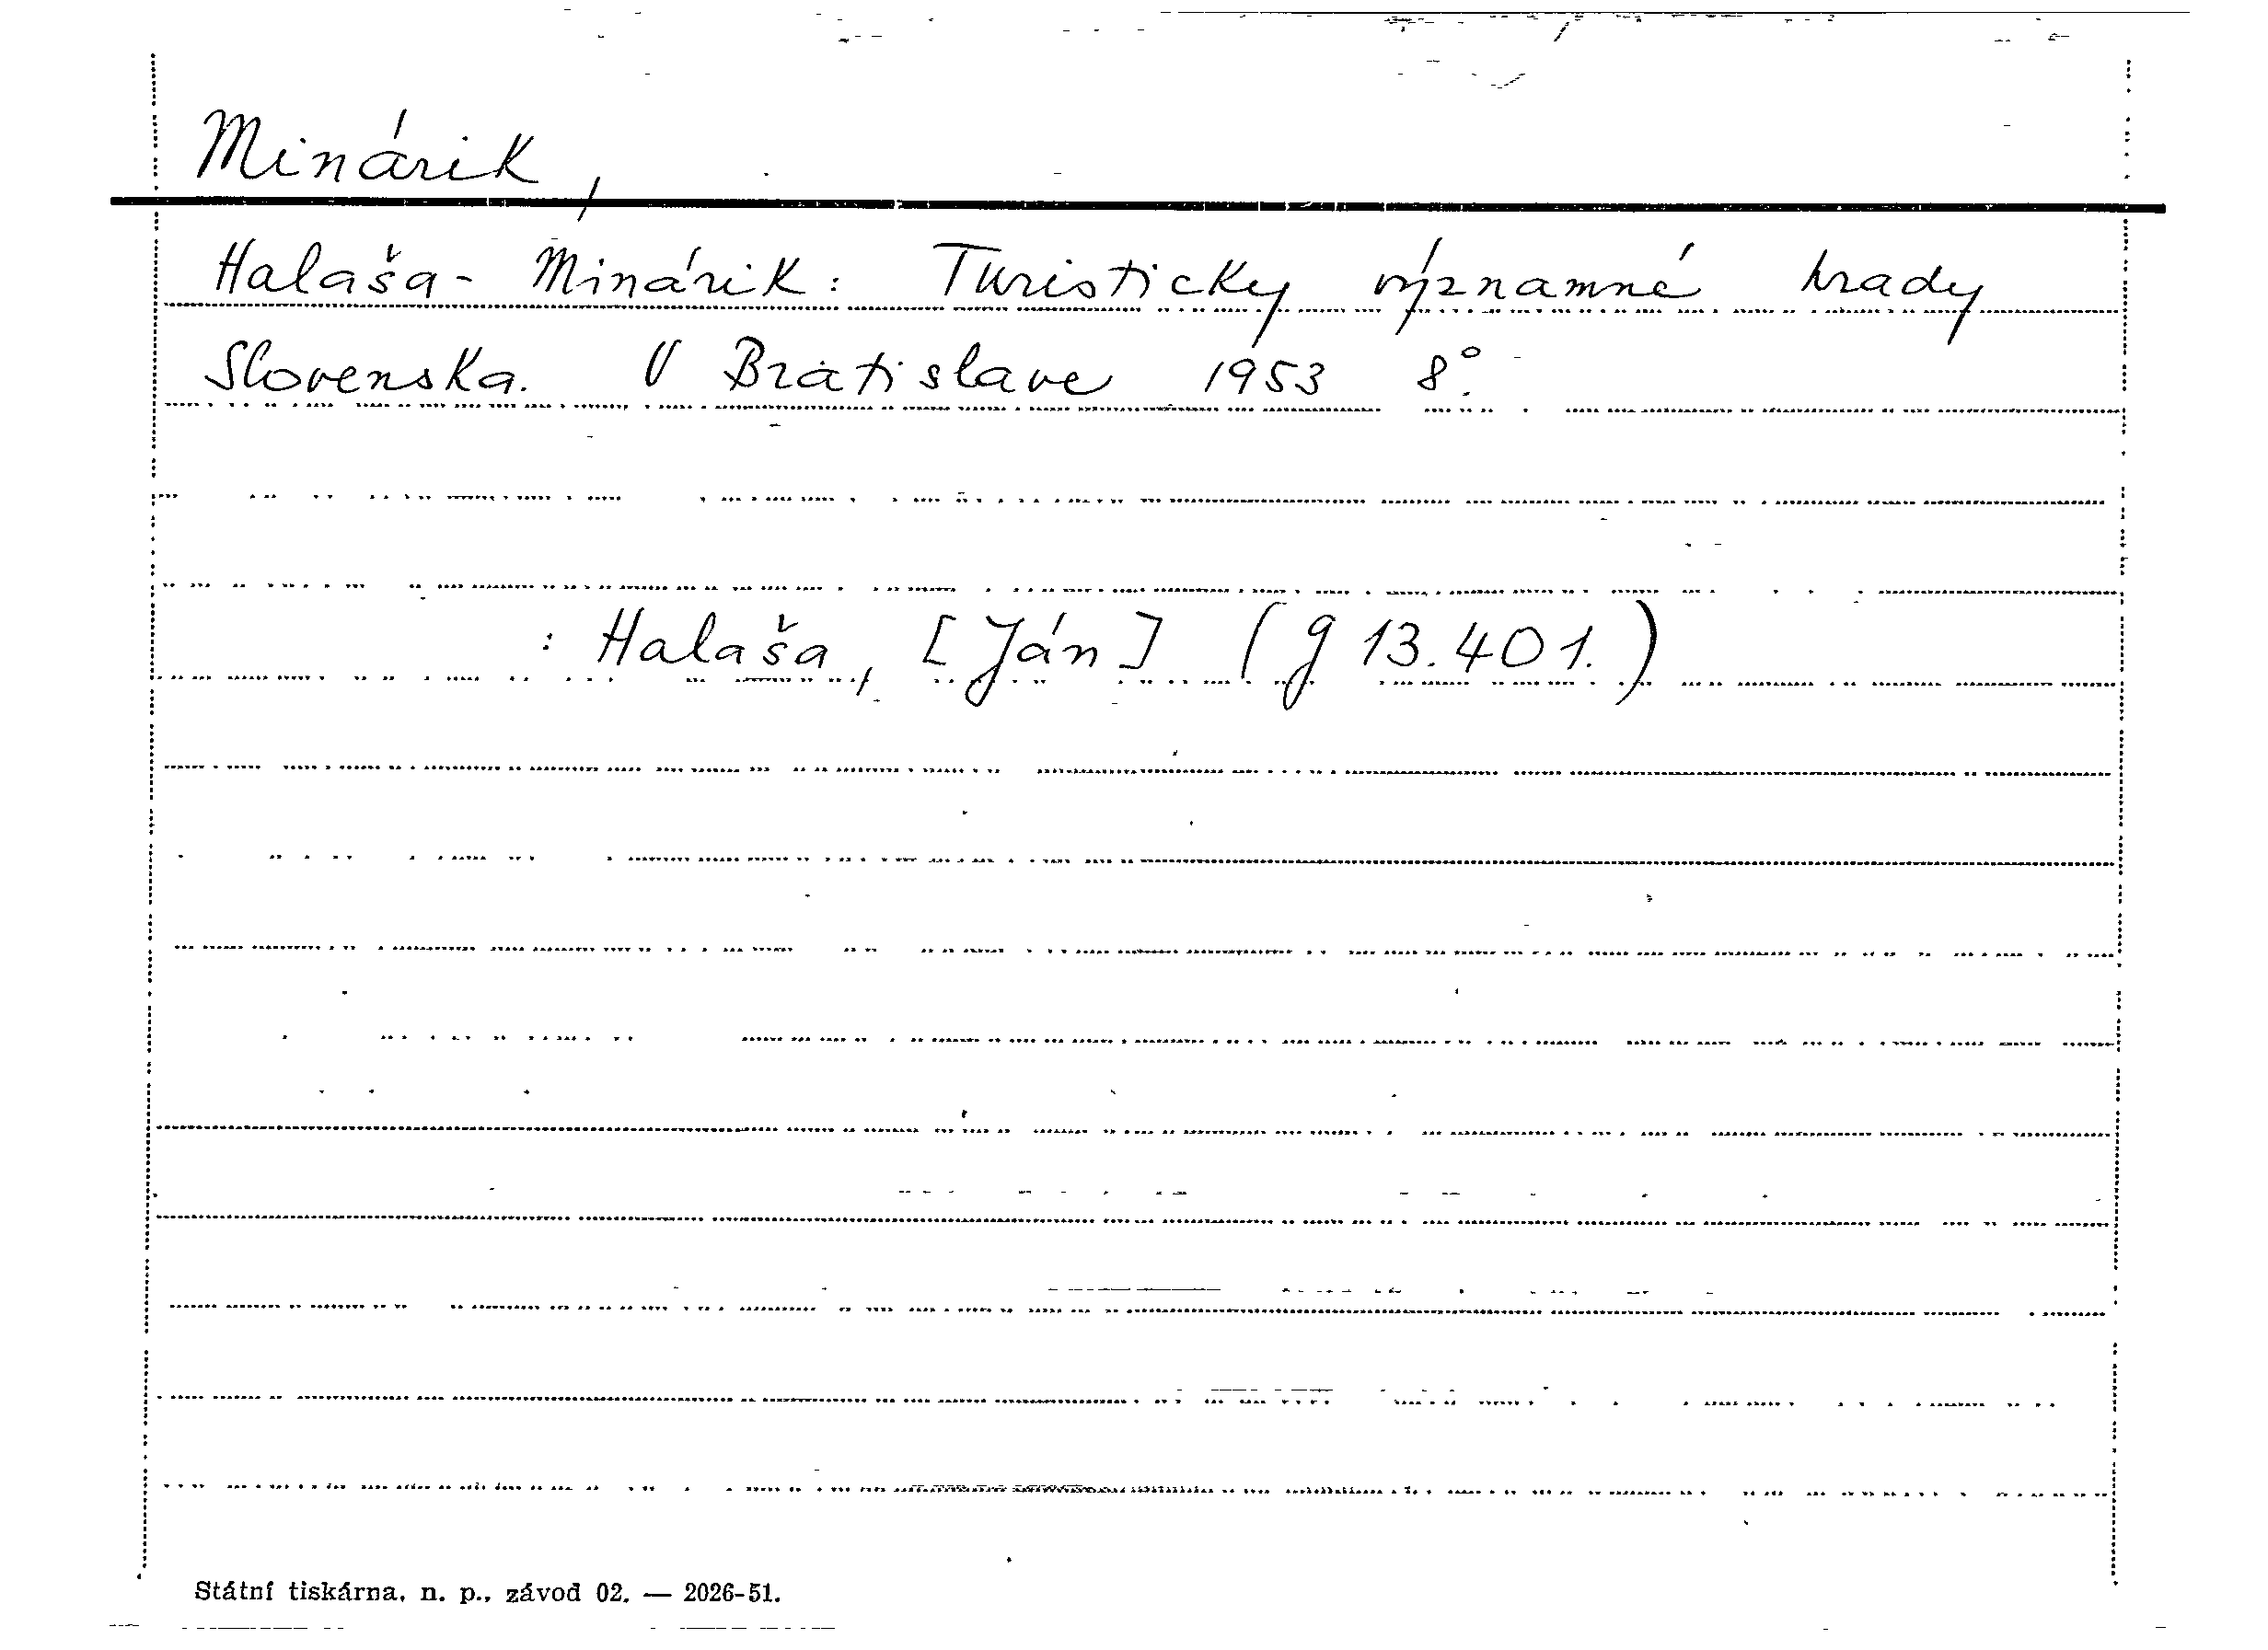 Minárik,
Halaša - Minárik: Turisticky významné hrady
Slovenska. V Bratislave 1953 8°.
: Halaša, [Ján] (g 13.401.)
Státní tiskárna, n. p., závod 02. — 2026-51.